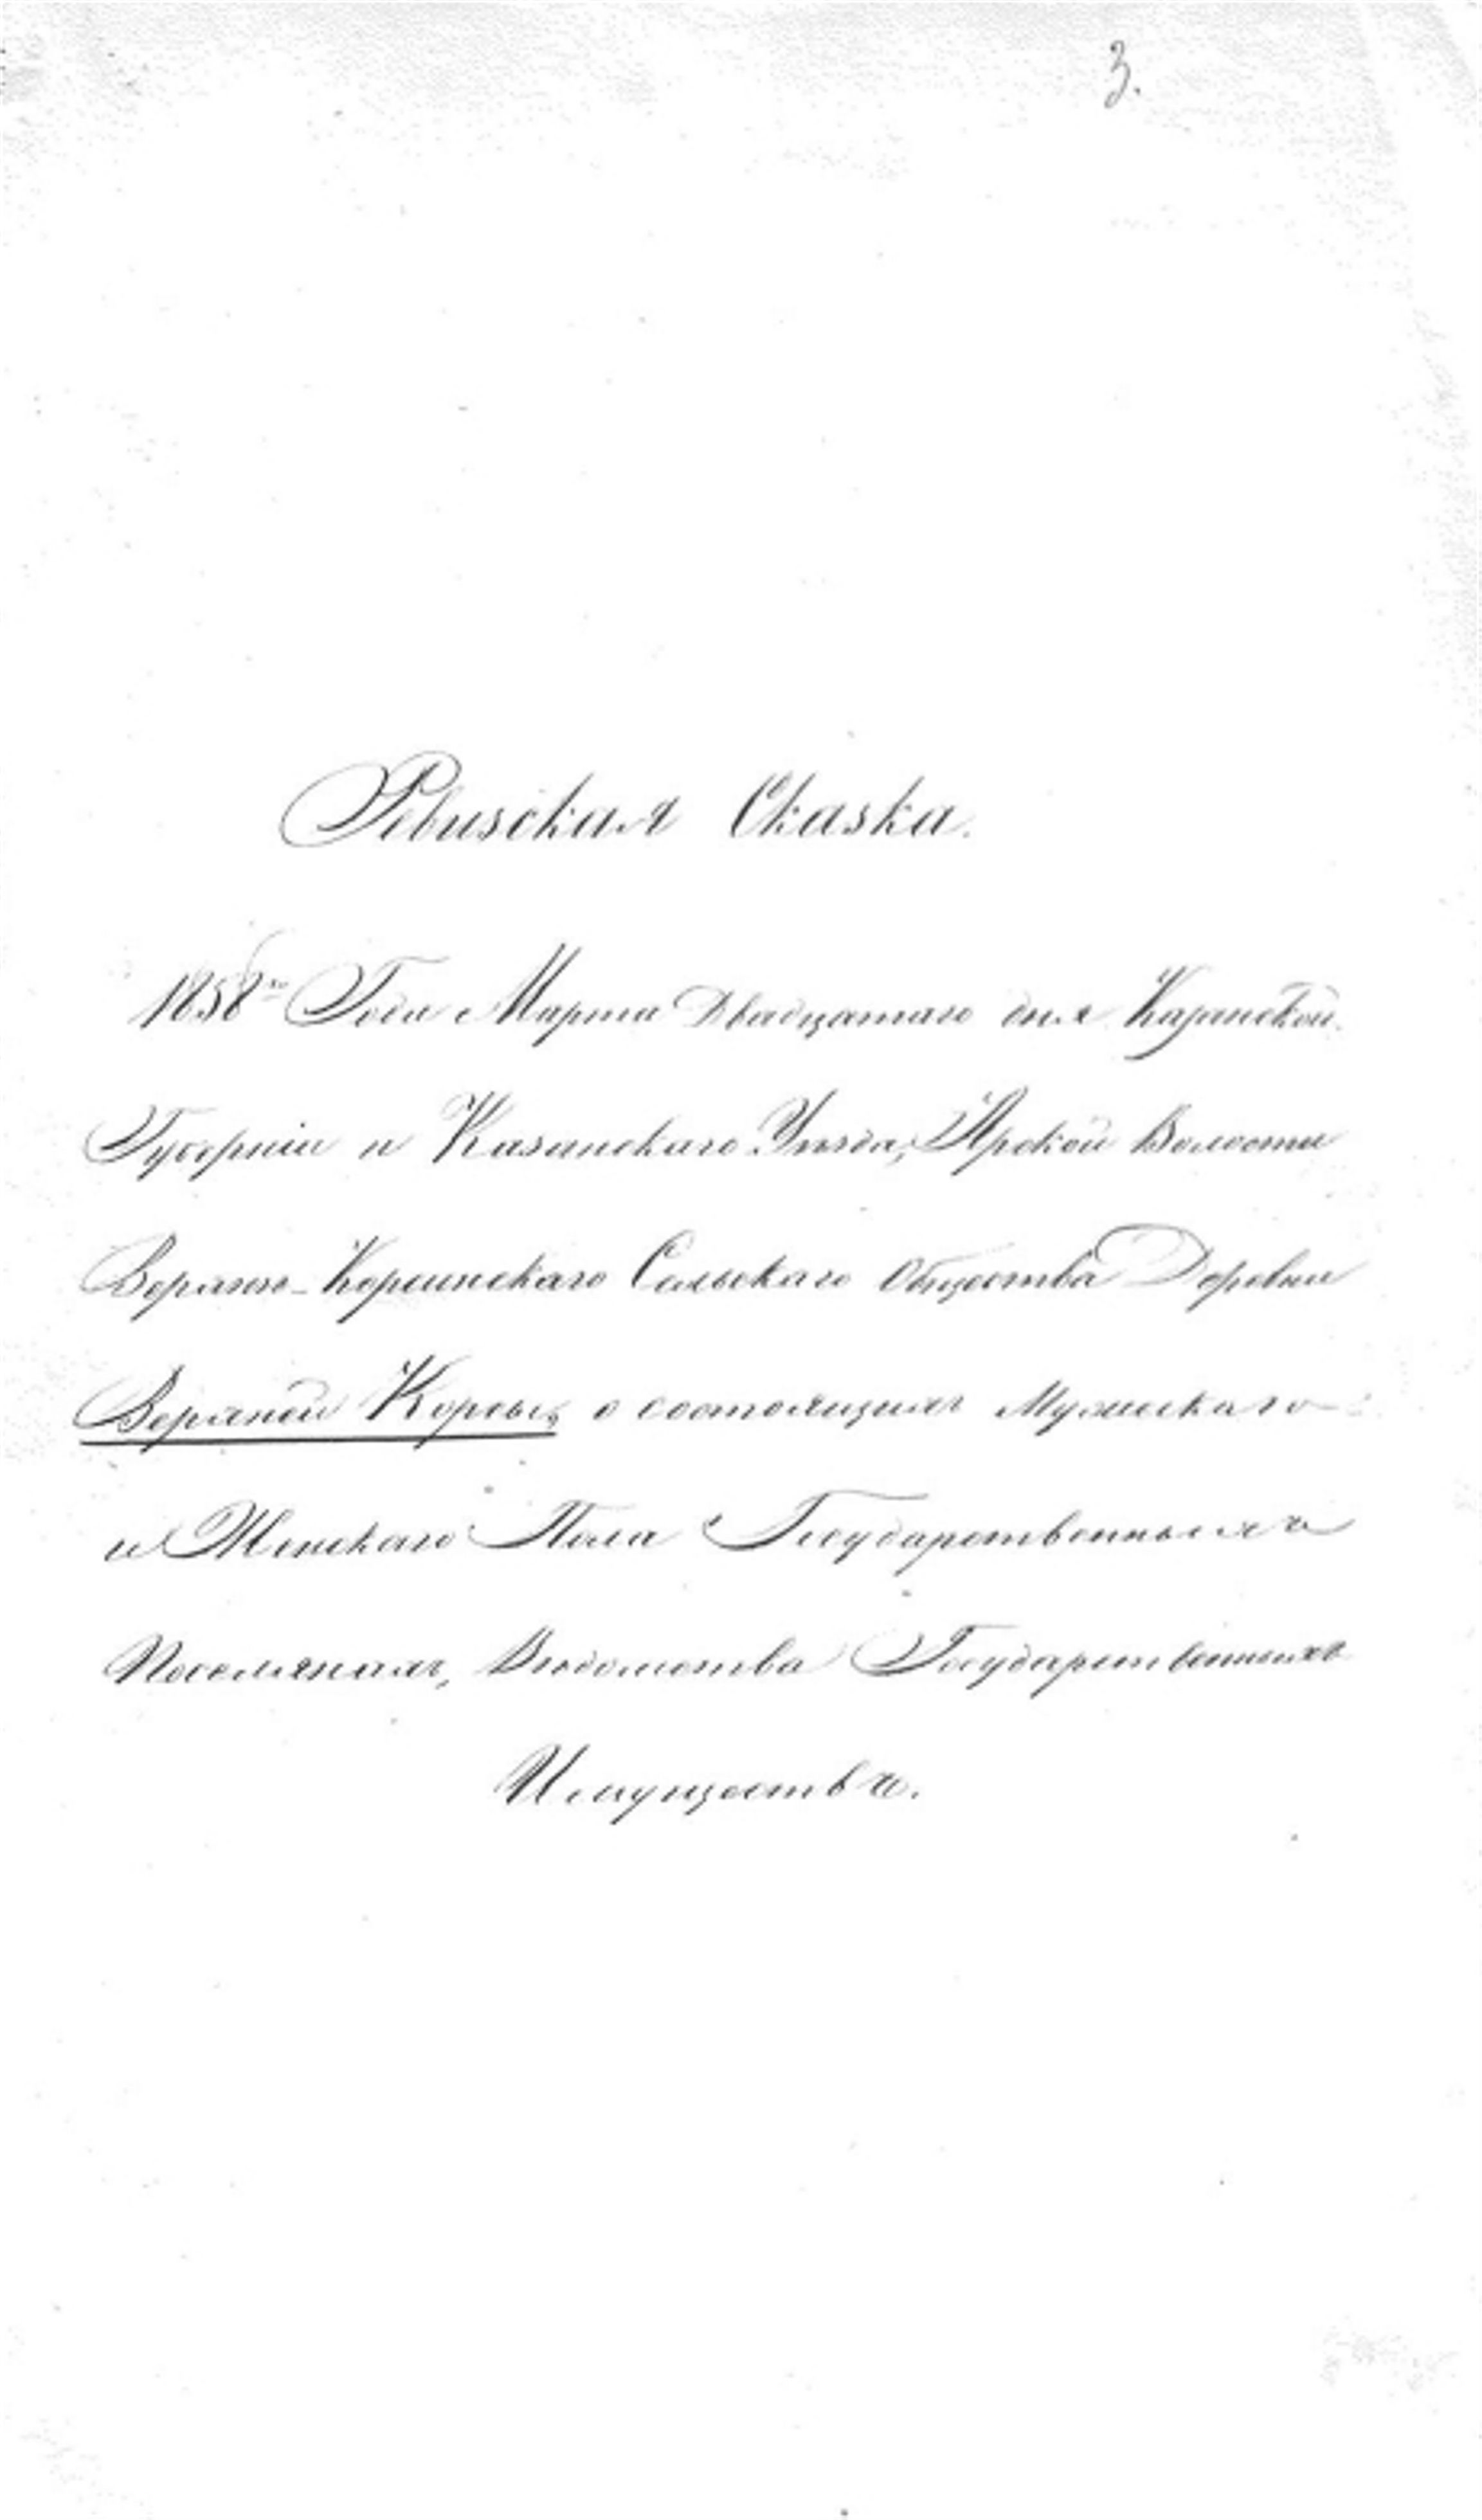 3.
Ревизская Сказка.
1858го Года Марта Двадцатаго дня Казанской
Губерніи и Казанскаго Уѣзда, Арской Волости
Верхне-Корсинскаго Сельскаго Общества Деревни
Верхней Корсы, о состоящихъ Мужескаго
и Женскаго Пола Государственныхъ
Поселянахъ, Вѣдомства Государственныхъ
Имуществъ.